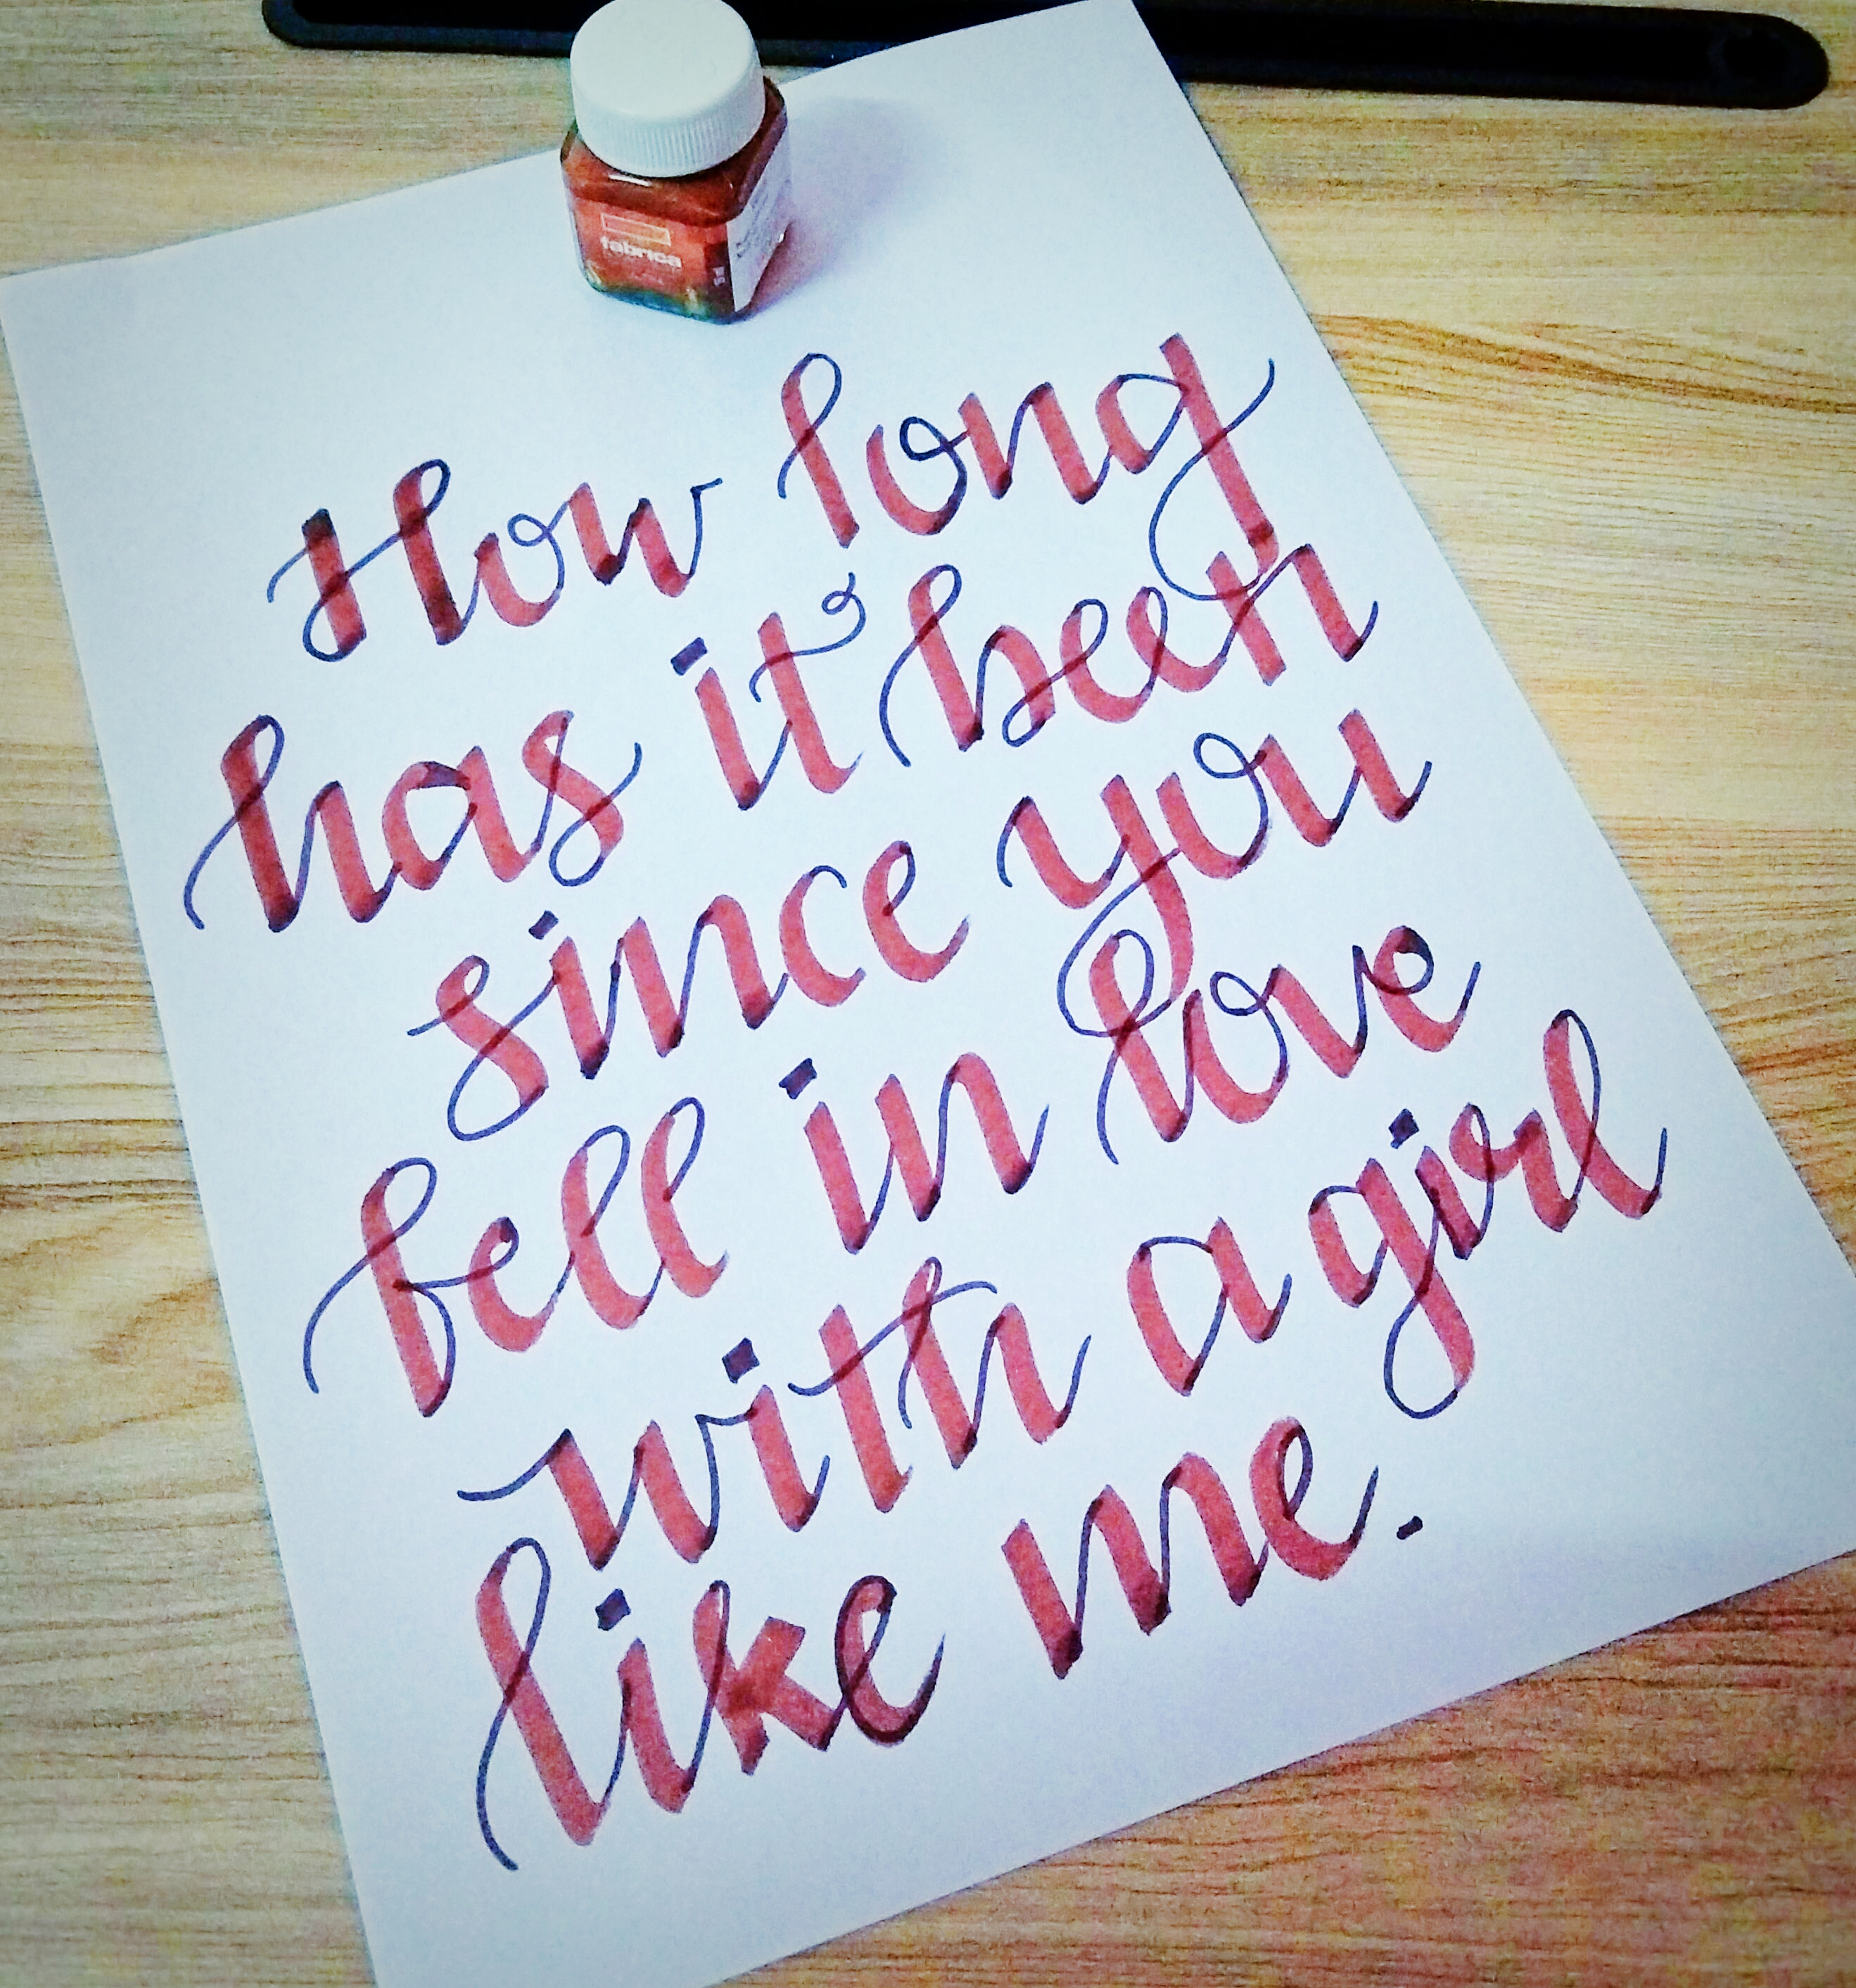 fabrica
How long
has it been
since you
fell in love
with a girl
like me.